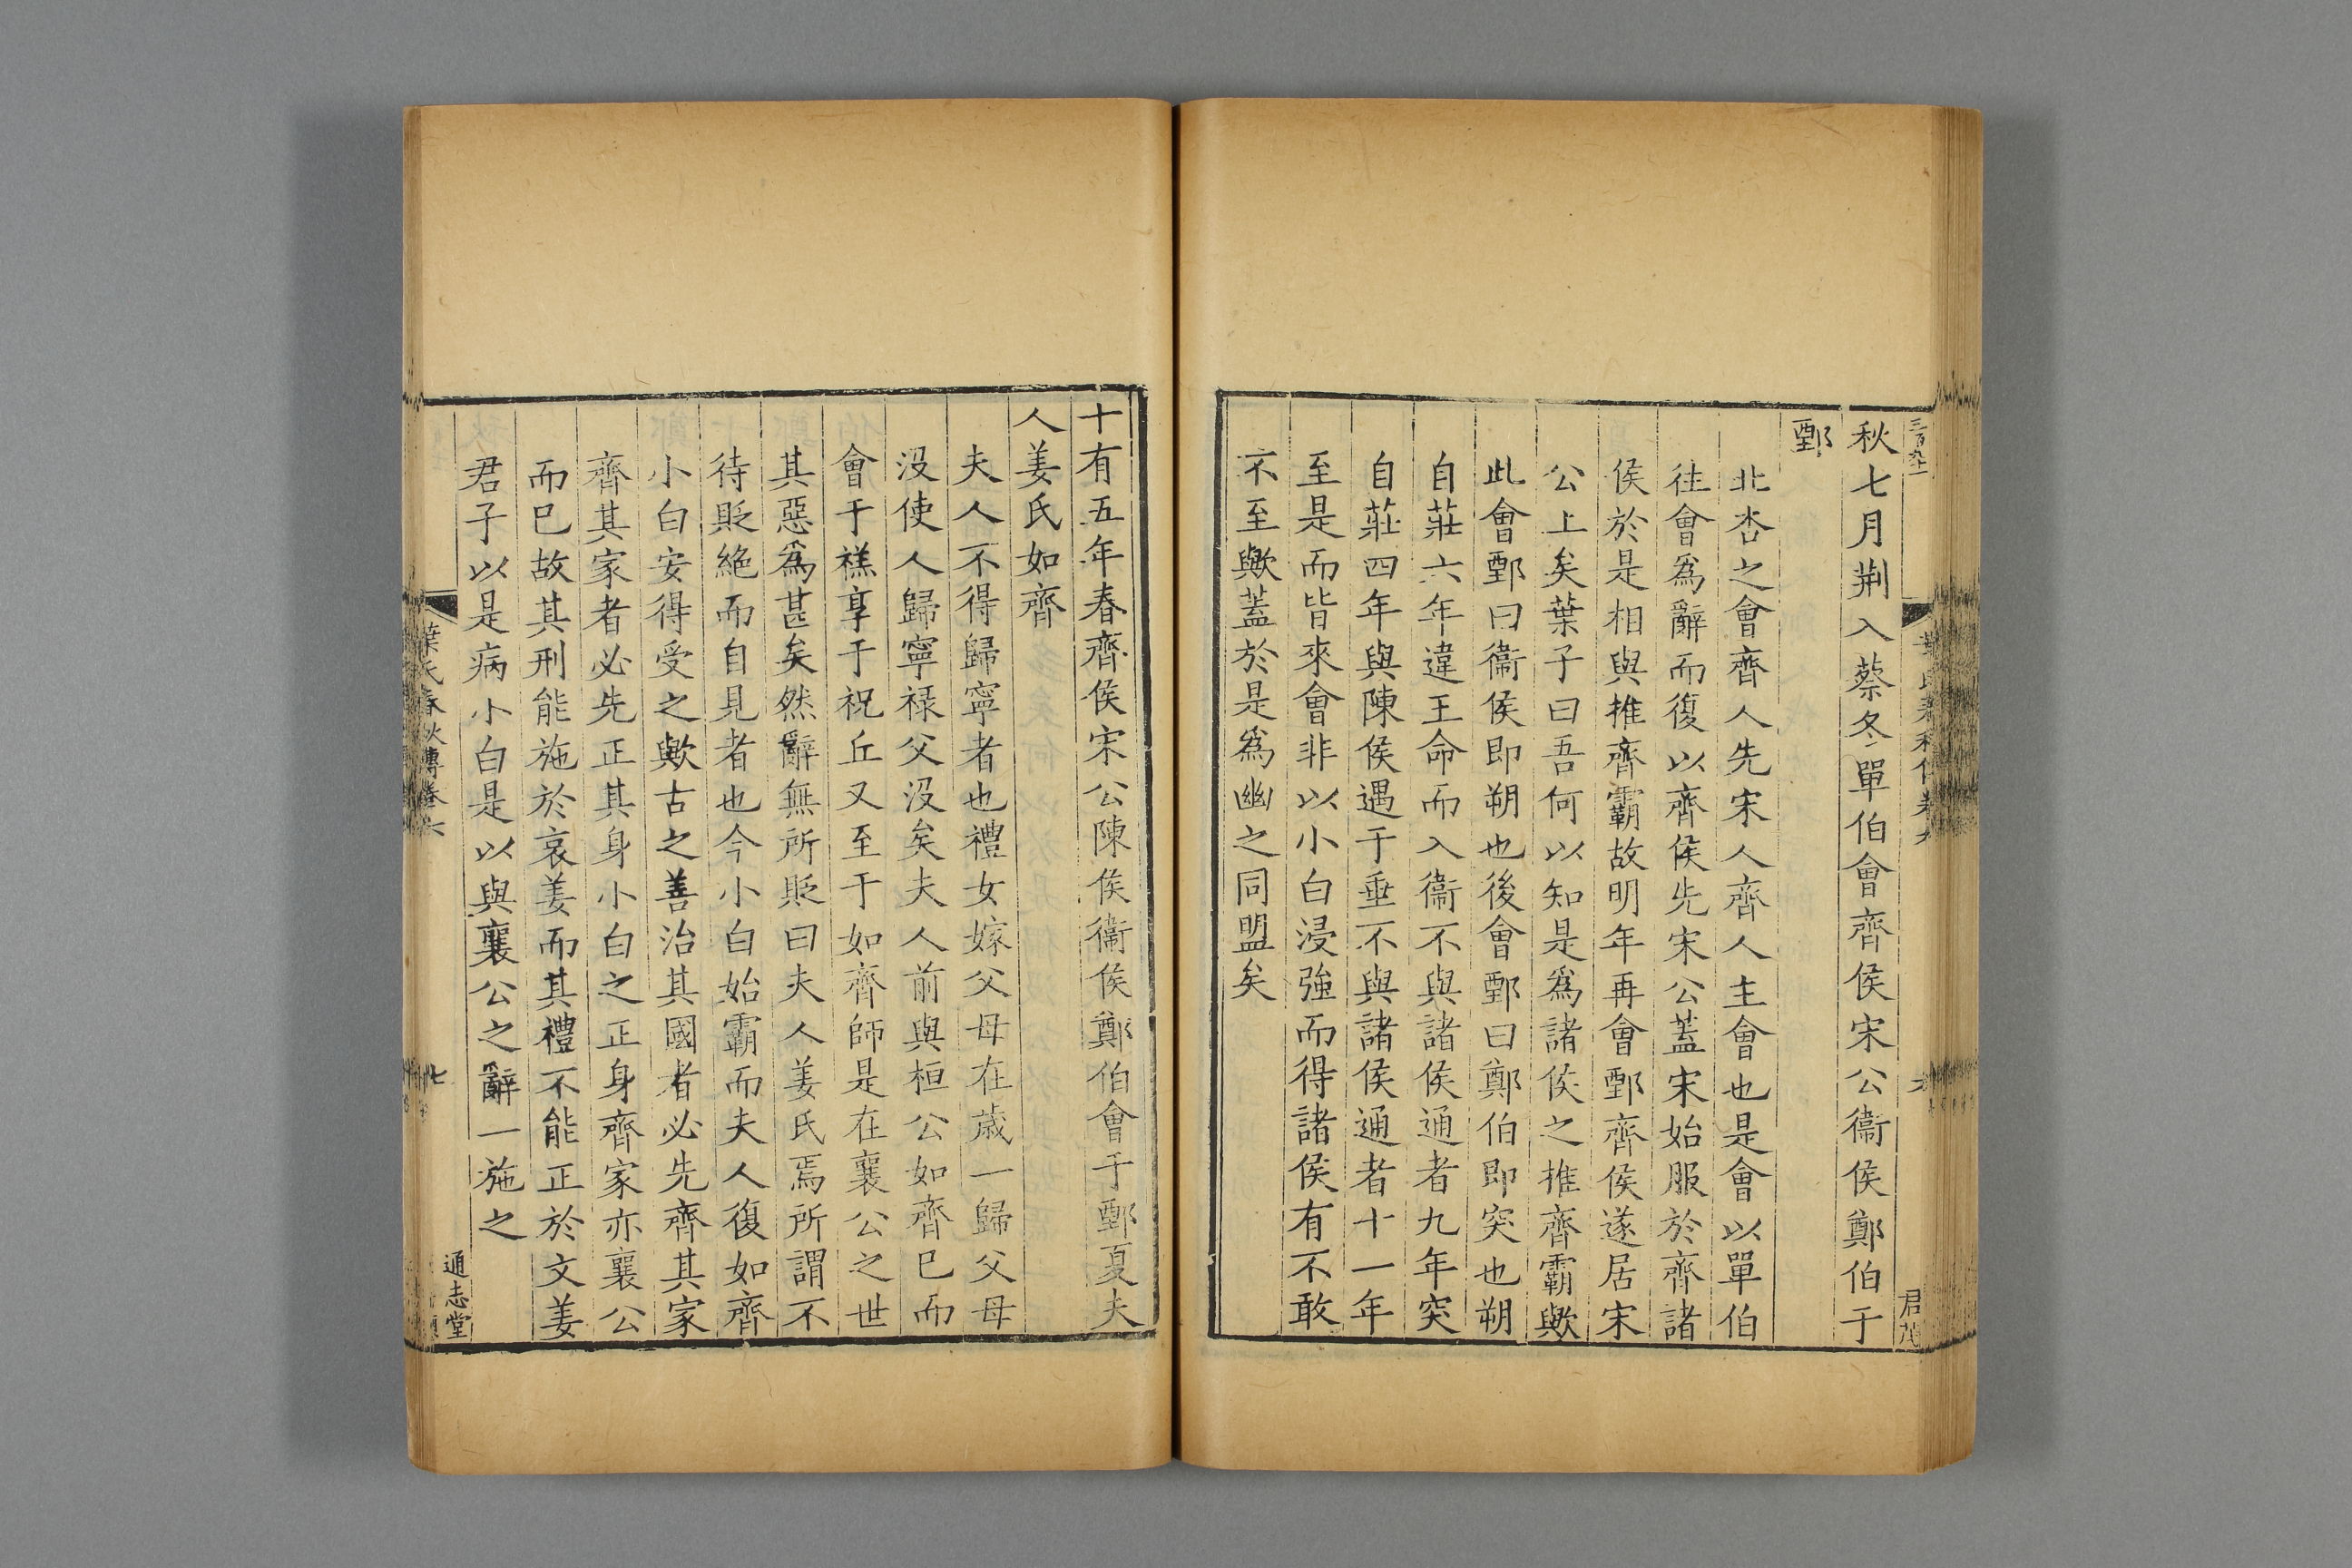 秋七月荆入蔡冬單伯會齊侯宋公衞侯鄭伯于
鄄
北杏之會齊人先宋人齊人主會也是會以單伯
往會爲辭而復以齊侯先宋公蓋宋始服於齊諸
侯於是相與推齊霸故明年再會鄄齊侯遂居宋
公上矣葉子曰吾何以知是爲諸侯之推齊霸歟
此會鄄曰衞侯即朔也後會鄄曰鄭伯即突也朔
自莊六年違王命而入衞不與諸侯通者九年突
自莊四年與陳侯遇于垂不與諸侯通者十一年
至是而皆來會非以小白浸強而得諸侯有不敢
不至歟蓋於是爲幽之同盟矣
君茂
十有五年春齊侯宋公陳侯衞侯鄭伯會于鄄夏夫
人姜氏如齊
夫人不得歸寧者也禮女嫁父母在歲一歸父母
没使人歸寧禄父没矣夫人前與桓公如齊已而
會于禚享于祝丘又至于如齊師是在襄公之世
其惡爲甚矣然辭無所貶曰夫人姜氏焉所謂不
待貶絶而自見者也今小白始霸而夫人復如齊
小白安得受之歟古之善治其國者必先齊其家
齊其家者必先正其身小白之正身齊家亦襄公
而已故其刑能施於哀姜而其禮不能正於文姜
君子以是病小白是以與襄公之辭一施之
葉氏春秋傳卷六
七
通志堂